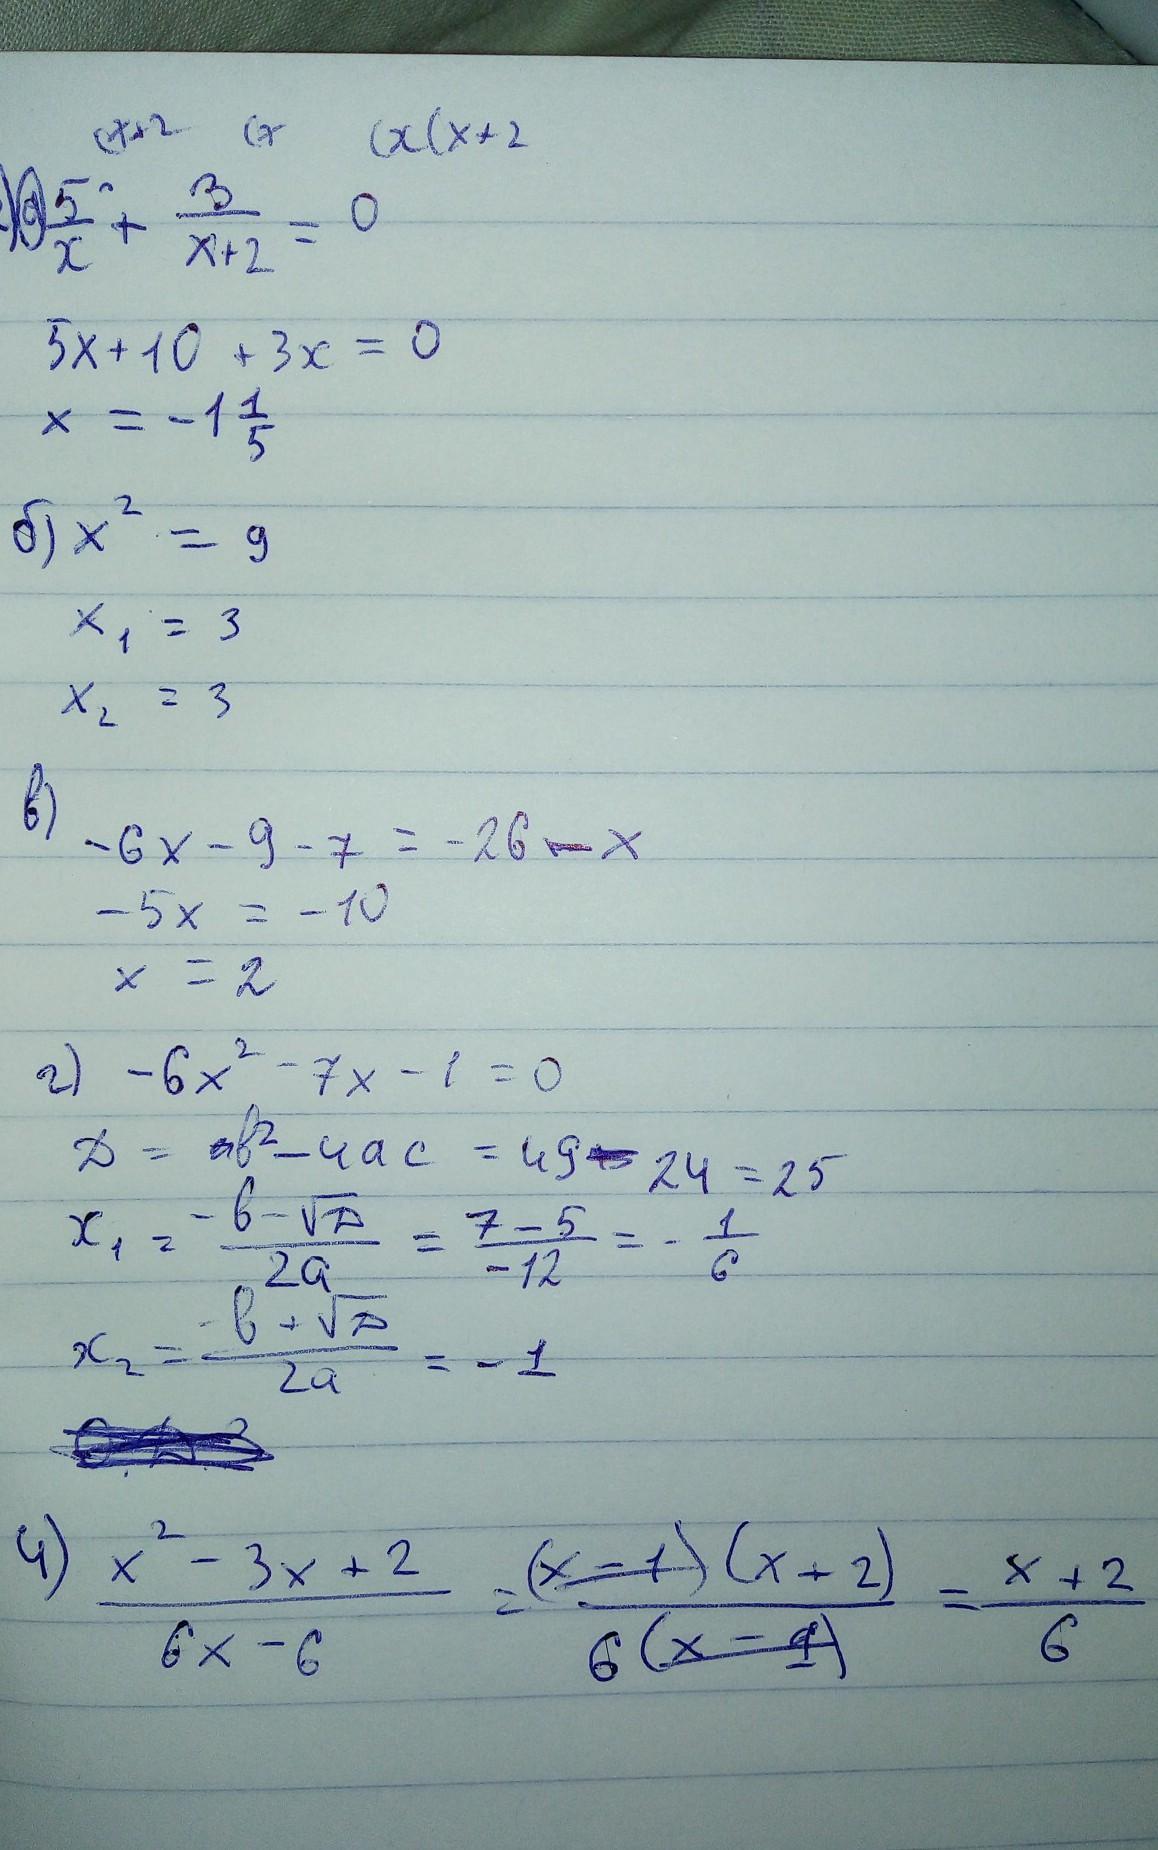 (x+2 (x (x(x+2
а) 5/x + 3/(x+2) = 0
5x+10 +3x = 0
x = -1 1/5
б) x² = 9
x₁ = 3
x₂ = 3
в)
-6x - 9 - 7 = -26 - x
-5x = -10
x = 2
г) -6x² - 7x - 1 = 0
D = b² - 4ac = 49 - 24 = 25
x₁ = (-b - √D)/(2a) = (7 - 5)/(-12) = - 1/6
x₂ = (-b + √D)/(2a) = - 1
4) (x² - 3x + 2)/(6x - 6) = ((x - 1)(x + 2))/(6(x - 1)) = (x + 2)/6